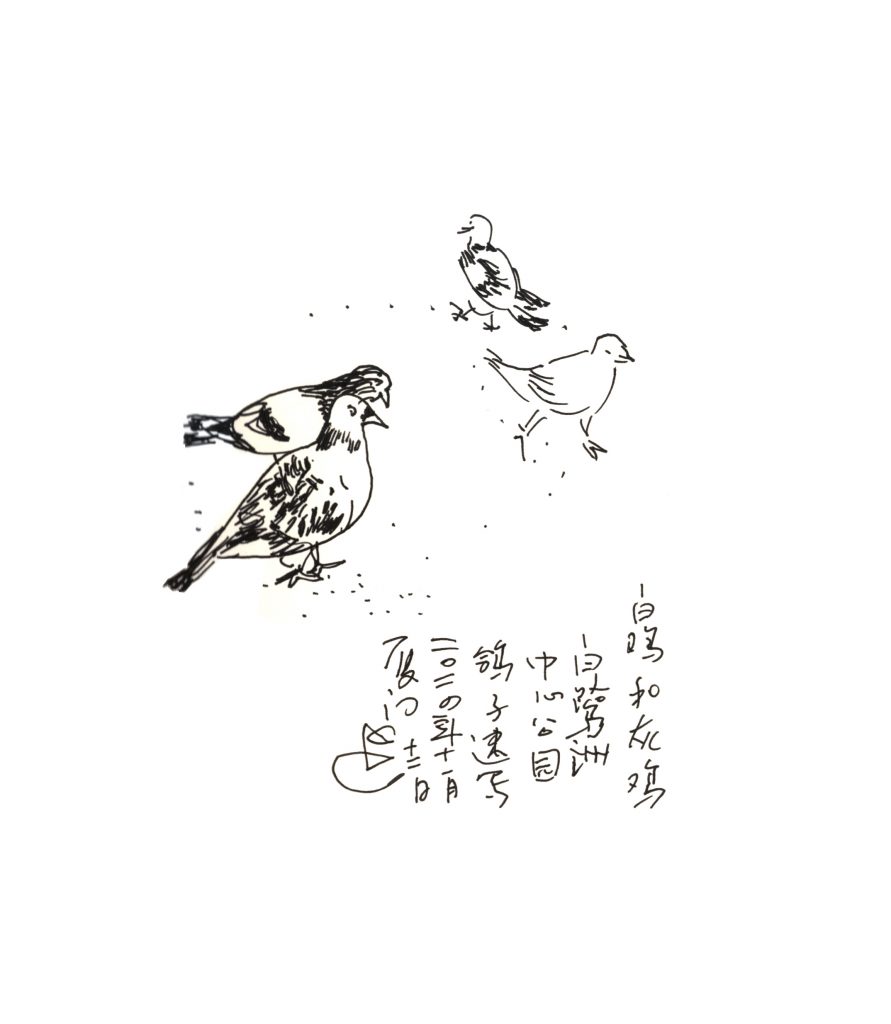 白鸡和灰鸡
白鹭洲
中心公园
鸽子速写
二〇二四年十一月
十二日
厦门